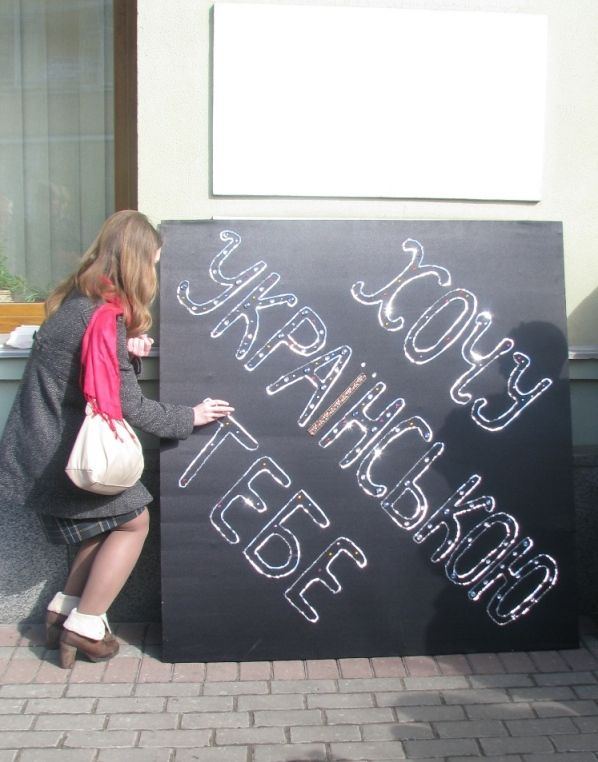 ХОЧУ
УКРАЇНСЬКОЮ
ТЕБЕ